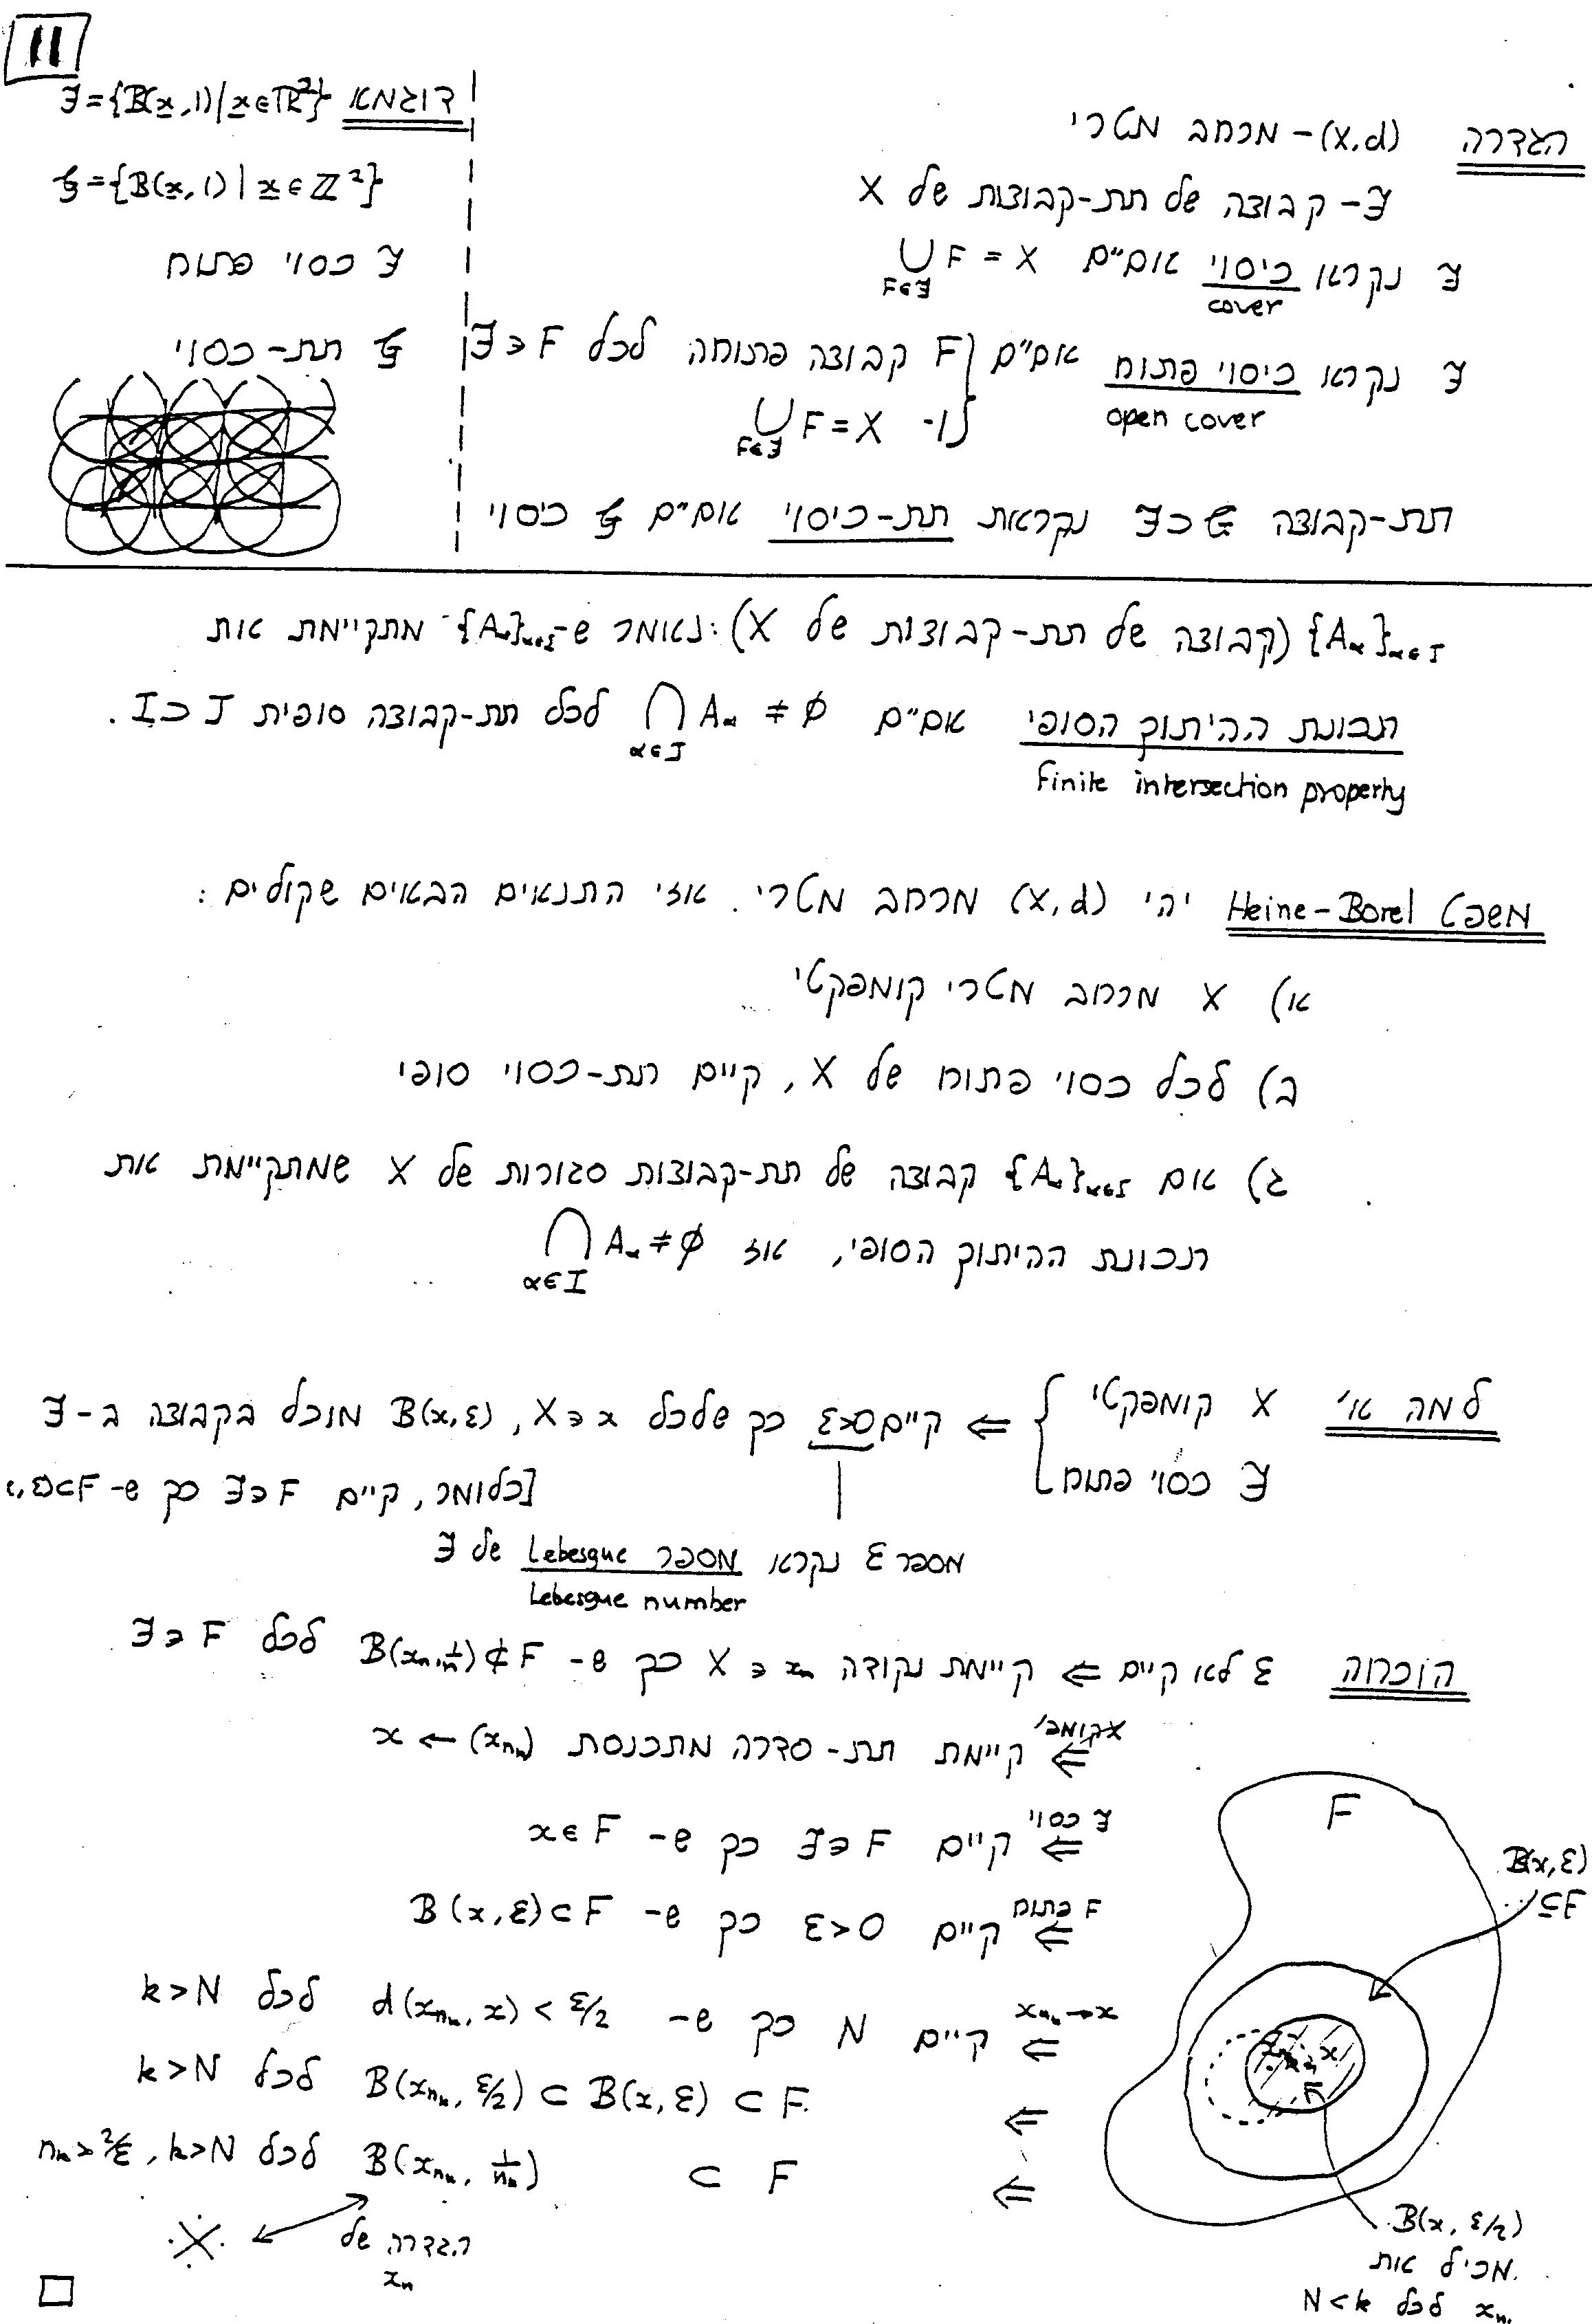 11
הגדרה (X,d) – מרחב מטרי
ℱ – קבוצה של תת-קבוצות של X
ℱ נקרא כיסוי אם״ם ⋃_{F∈ℱ} F = X
cover
ℱ נקרא כיסוי פתוח אם״ם { F קבוצה פתוחה לכל F∈ℱ
open cover
ו- ⋃_{F∈ℱ} F = X
תת-קבוצה 𝒢⊂ℱ נקראת תת-כיסוי אם״ם 𝒢 כיסוי
דוגמא ℱ={B(x,1)|x∈ℝ²}
𝒢={B(x,1)|x∈ℤ²}
ℱ כסוי פתוח
𝒢 תת-כסוי
{A_α}_{α∈I} (קבוצה של תת-קבוצות של X): נאומר ש-{A_α}_{α∈I} מתקיימת את
תכונת החיתוך הסופי אם״ם ⋂_{α∈J} A_α ≠ ∅ לכל תת-קבוצה סופית J⊂I.
finite intersection property
משפט Heine-Borel יהי (X,d) מרחב מטרי. אזי התנאים הבאים שקולים:
א) X מרחב מטרי קומפקטי
ב) לכל כסוי פתוח של X, קיים תת-כסוי סופי
ג) אם {A_α}_{α∈I} קבוצה של תת-קבוצות סגורות של X שמתקיימת את
תכונת החיתוך הסופי, אז ⋂_{α∈I} A_α≠∅
למה א' { X קומפקטי ⇐ קיים ε>0 כך שלכל x∈X, B(x,ε) מוכל בקבוצה ב-ℱ
ℱ כסוי פתוח
[כלומר, קיים F∈ℱ כך ש-
מספר ε נקרא מספר Lebesgue של ℱ
Lebesgue number
הוכחה ε לא קיים ⇐ קיימת נקודה x_n∈X כך ש- B(x_n,1/n)⊄F לכל F∈ℱ
X קומפ' ⇐ קיימת תת-סדרה מתכנסת (x_{n_k}) → x
ℱ כסוי ⇐ קיים F∈ℱ כך ש- x∈F
F פתוח ⇐ קיים ε>0 כך ש- B(x,ε)⊂F
x_{n_k}→x ⇐ קיים N כך ש- d(x_{n_k},x)<ε/2 לכל k>N
⇐ B(x_{n_k},ε/2)⊂B(x,ε)⊂F לכל k>N
⇐ B(x_{n_k},1/n_k) ⊂ F לכל k>N, n_k>2/ε
הגדרה של
x_n
□
F
B(x,ε)
⊆F
x
B(x,ε/2)
מכיל את
x_{n_k} לכל N<k